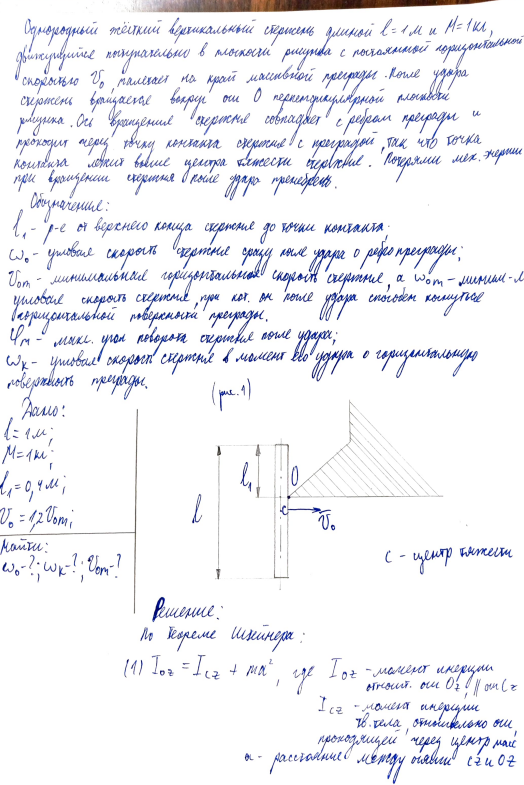 Однородный жёсткий вертикальный стержень длиной l = 1 м и M = 1 кг,
движущийся поступательно в плоскости рисунка с постоянной горизонтальной
скоростью V₀, налетает на край массивной преграды. После удара
стержень вращается вокруг оси O перпендикулярной плоскости
рисунка. Ось вращения стержня совпадает с ребром преграды и
проходит через точку контакта стержня с преградой, так что точка
контакта лежит выше центра тяжести стержня. Потерями мех. энергии
при вращении стержня после удара пренебречь.
Обозначения:
l₁ - р-е от верхнего конца стержня до точки контакта.
ω₀ - угловая скорость стержня сразу после удара о ребро преграды;
V₀m - минимальная горизонтальная скорость стержня, а ω₀m - миним-я
угловая скорость стержня, при кот. он после удара способен коснуться
горизонтальной поверхности преграды.
φm - макс. угол поворота стержня после удара;
ωк - угловая скорость стержня в момент его удара о горизонтальную
поверхность преграды.
(рис. 1)
Дано:
l = 1 м;
M = 1 кг;
l₁ = 0,4 м;
V₀ = 1,2 V₀m;
Найти:
ω₀ - ?; ωк - ?; V₀m - ?
l
l₁
O
C
V₀
C - центр тяжести
Решение:
По теореме Штейнера:
(1) I_OZ = I_CZ + ma², где I_OZ - момент инерции
относит. оси OZ, || оси CZ
I_CZ - момент инерции
тв. тела, относительно оси,
проходящей через центр масс
a - расстояние между осями CZ и OZ